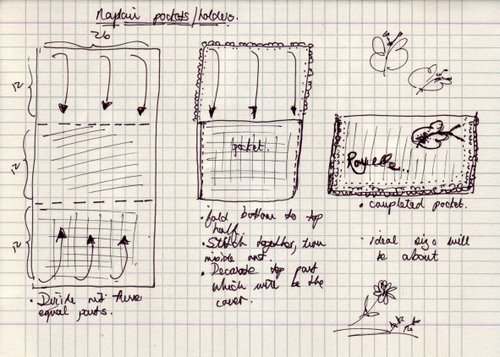 Napkin pockets/holders.
26
12
12
12
pocket.
Royelle...
• Divide into three
equal parts.
• fold bottom to top
half.
• Stitch together, turn
inside out.
• Decorate top part
which will be the
cover.
• completed pocket.
• ideal size will
be about